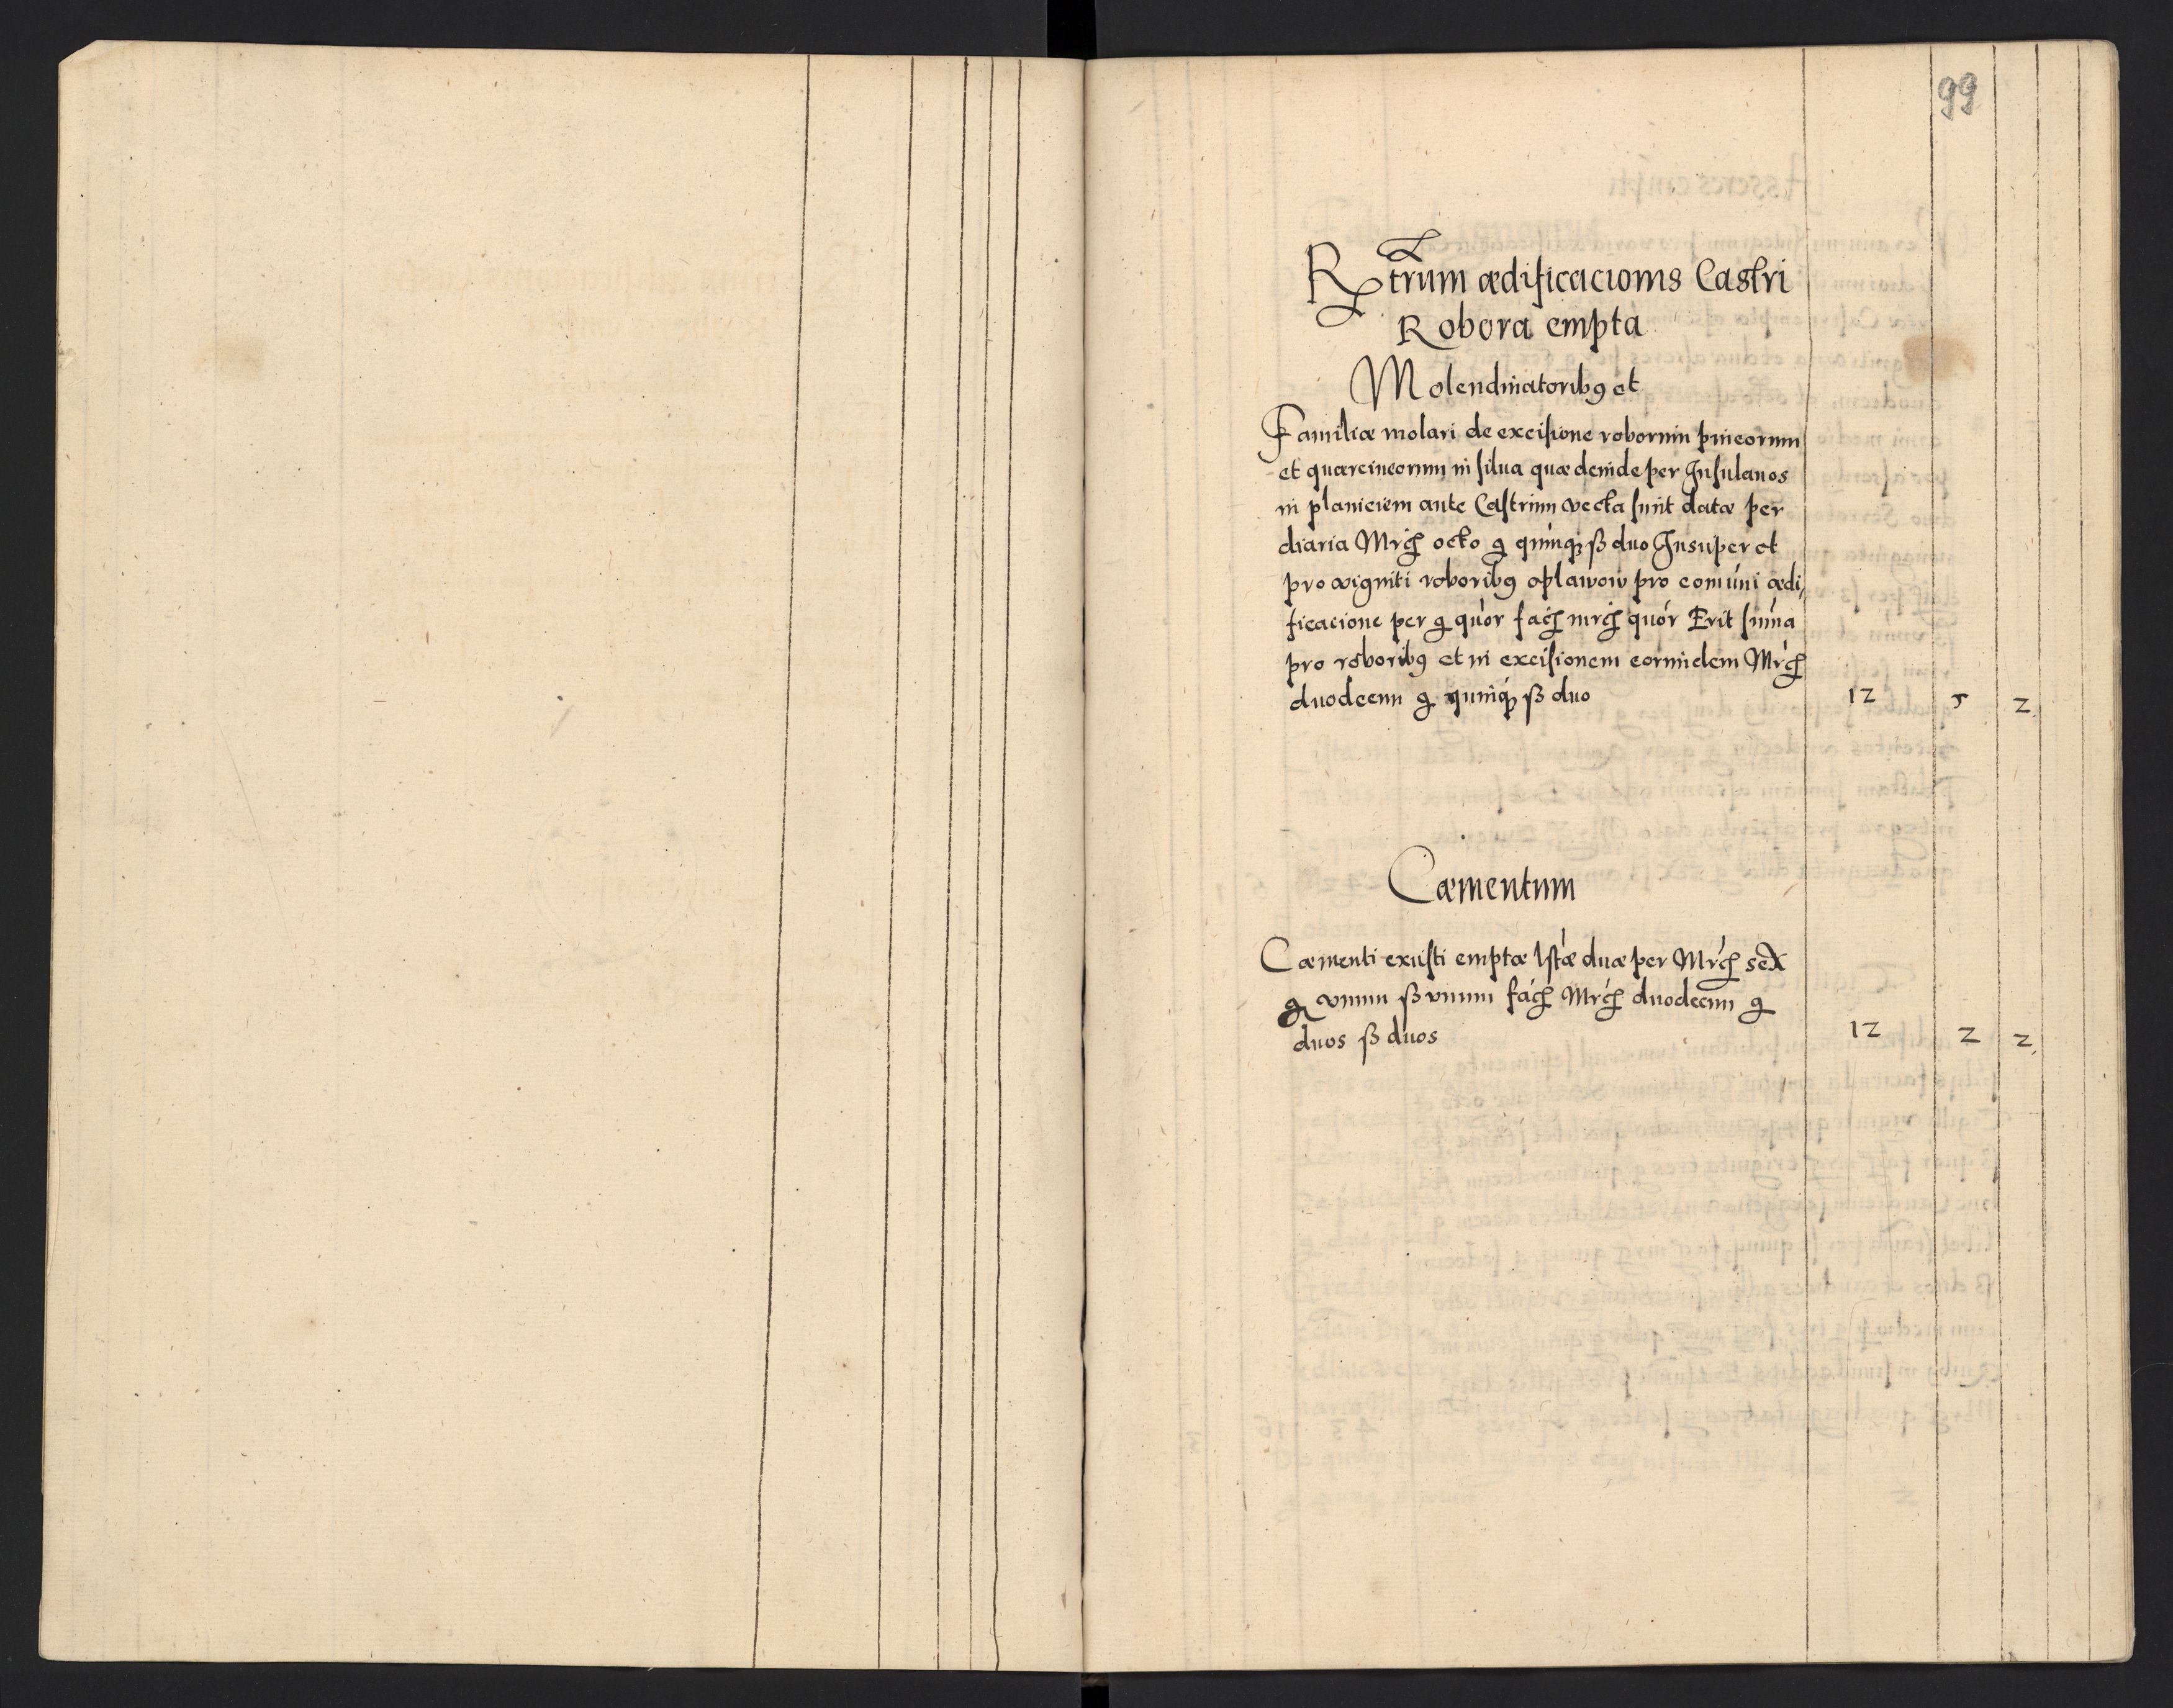 99
Rtrum ædificacionis Castri
Robora empta
Molendinatoribꝯ et
Familiæ molari de excisione roborum pineorum
et quærcineorum in silua quæ deinde per Insulanos
in planiciem ante Castrum vecta sunt datæ per
diaria Mrcẜ octo g quinqꝫ ß duo Insuper et
pro viginti roboribꝯ oplawow pro comuni ædi,
ficacione per g quor facẜ mrcẜ quor Erit suma
pro roboribꝯ et in excisionem eorundem Mrcẜ
duodecim g quinqꝫ ß duo 12 5 2
Cæmentum
Cæmenti exusti emptæ lstæ duæ per Mrcẜ sex
g vnum ß vnum facẜ Mrcẜ duodecim g
duos ß duos 12 2 2